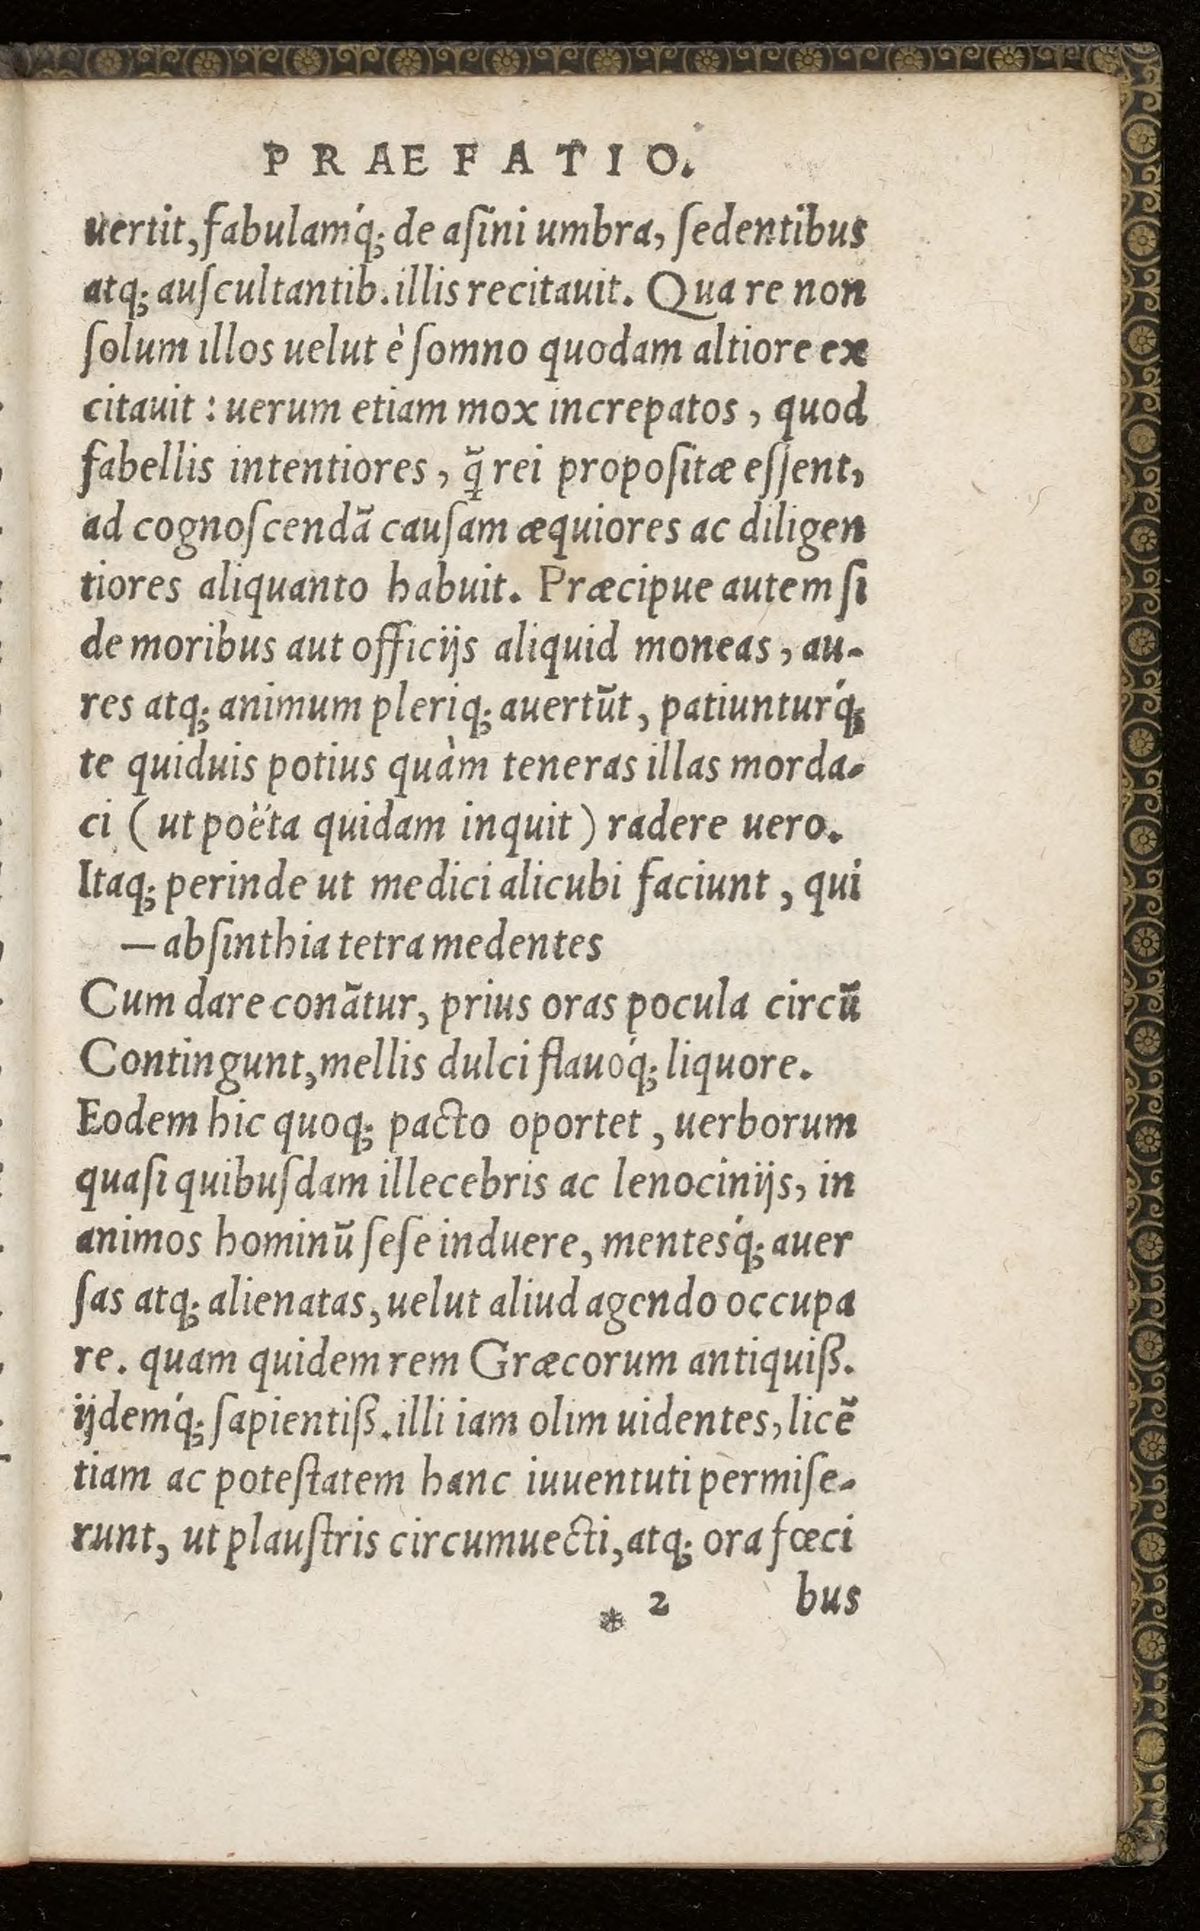 PRAEFATIO.
uertit, fabulamq́; de aſini umbra, ſedentibus
atq; auſcultantib. illis recitauit. Qua re non
ſolum illos uelut è ſomno quodam altiore ex
citauit : uerum etiam mox increpatos , quod
fabellis intentiores , q̃ rei propoſitæ eſſent,
ad cognoſcendã cauſam æquiores ac diligen
tiores aliquanto habuit. Præcipue autem ſi
de moribus aut officijs aliquid moneas , au-
res atq; animum pleriq; auertũt , patiunturq́;
te quiduis potius quàm teneras illas morda-
ci ( ut poëta quidam inquit ) radere uero.
Itaq; perinde ut medici alicubi faciunt , qui
— abſinthia tetra medentes
Cum dare conãtur, prius oras pocula circũ
Contingunt, mellis dulci flauoq́; liquore.
Eodem hic quoq; pacto oportet , uerborum
quaſi quibuſdam illecebris ac lenocinijs, in
animos hominũ ſeſe induere, mentesq́; auer
ſas atq; alienatas, uelut aliud agendo occupa
re. quam quidem rem Græcorum antiquiß.
ijdemq́; ſapientiß. illi iam olim uidentes, licẽ
tiam ac poteſtatem hanc iuuentuti permiſe-
runt, ut plauſtris circumuecti, atq; ora fœci
* 2 bus